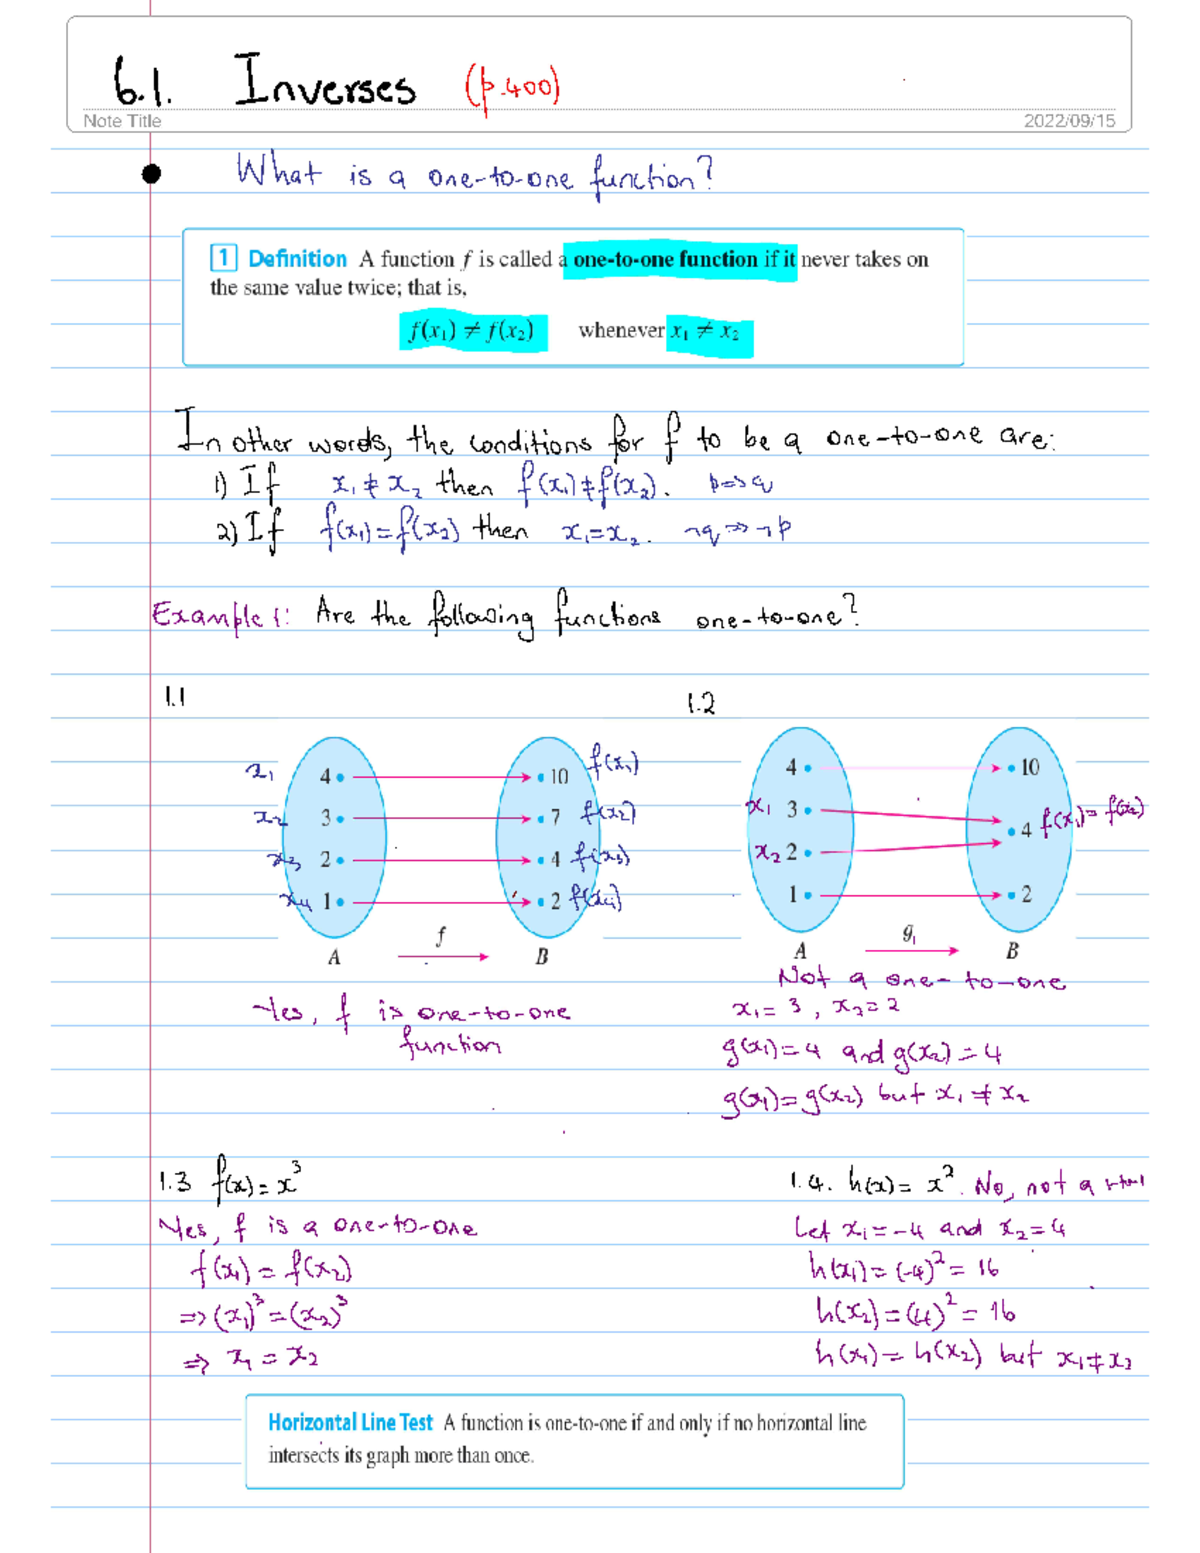 6.1. Inverses (p.400)
Note Title
2022/09/15
What is a one-to-one function?
1 Definition A function f is called a one-to-one function if it never takes on
the same value twice; that is,
f(x₁) ≠ f(x₂) whenever x₁ ≠ x₂
In other words, the conditions for f to be a one-to-one are:
1) If x₁ ≠ x₂ then f(x₁) ≠ f(x₂). p⇒q
2) If f(x₁) = f(x₂) then x₁ = x₂. ¬q ⇒ ¬p
Example 1: Are the following functions one-to-one?
1.1
x₁ 4 10 f(x₁)
x₂ 3 7 f(x₂)
x₃ 2 4 f(x₃)
x₄ 1 2 f(x₄)
A f B
Yes, f is one-to-one
function
1.2
4 10
x₁ 3
4 f(x₁) = f(x₂)
x₂ 2
1 2
A g₁ B
Not a one-to-one
x₁ = 3, x₂ = 2
g(x₁) = 4 and g(x₂) = 4
g(x₁) = g(x₂) but x₁ ≠ x₂
1.3 f(x) = x³
Yes, f is a one-to-one
f(x₁) = f(x₂)
⇒ (x₁)³ = (x₂)³
⇒ x₁ = x₂
1.4. h(x) = x². No, not a
Let x₁ = -4 and x₂ = 4
h(x₁) = (-4)² = 16
h(x₂) = (4)² = 16
h(x₁) = h(x₂) but x₁ ≠ x₂
Horizontal Line Test A function is one-to-one if and only if no horizontal line
intersects its graph more than once.